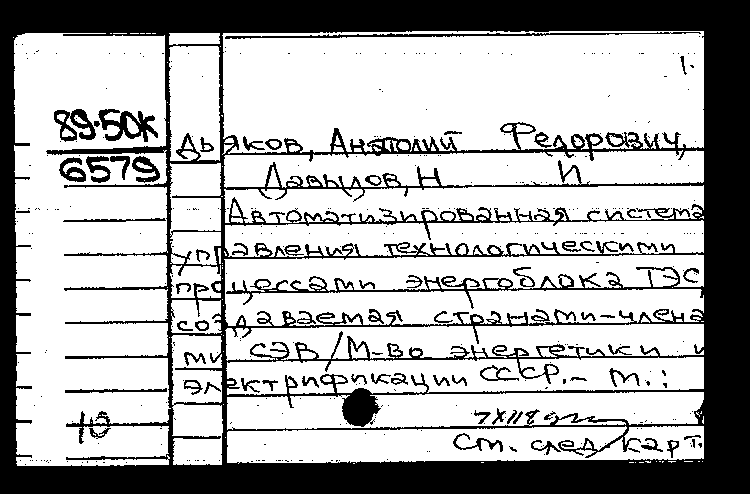 1.
89-50К
6579
Дьяков, Анатолий Федорович,
Давыдов, Н И
Автоматизированная система
управления технологическими
процессами энергоблока ТЭС,
создаваемая странами-члена
ми СЭВ/М-во энергетики и
электрификации СССР.- М.:
10
См. след. карт.